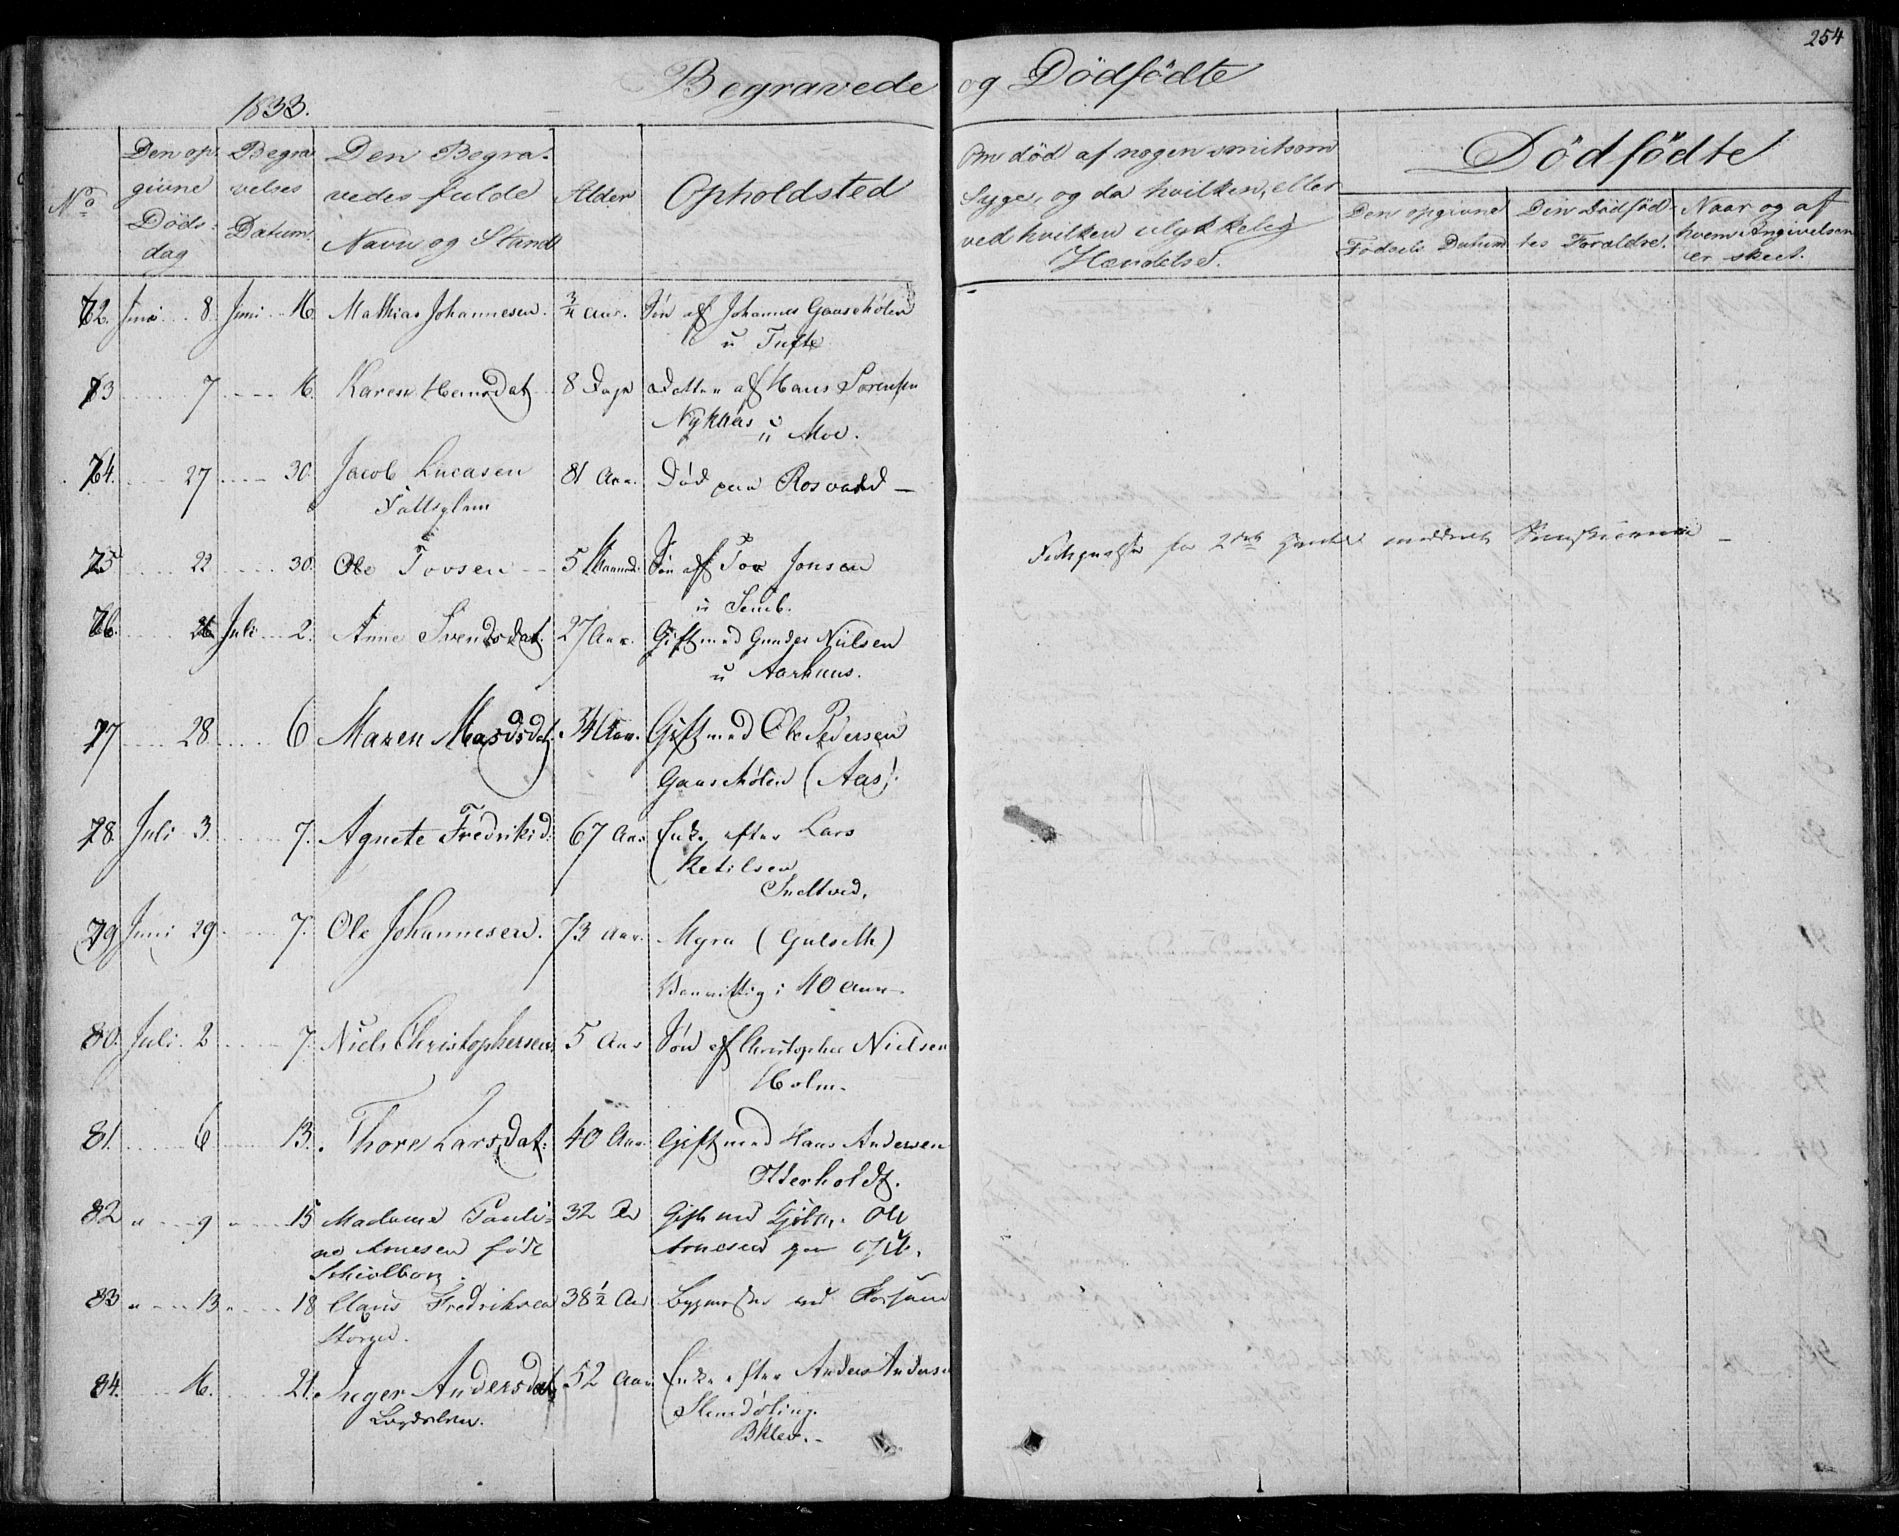 254
Begravede og Dødfödte
1833.
No
Den op-
givne
Döds-
dag
Begra-
velses
Datum.
Den Begra-
vedes fulde
Navn og Stand
Alder
Opholdsted
Om död af nogen smitsom
Syge, og da hvilken, eller
ved hvilken ulykkelig
Hændelse.
Dödfödte
Den opgivne
Födsels Datum
Den Dödföd-
tes Forældre.
Naar og af
hvem Angivelsen
er skeet.
72. Juni 8. Juni 16. Mathias Johannesen. 3/4 Aar. Søn af Johannes Gaasehölen
u Tufte
73 7 16. Karen Hansdat 8 Dage Datter af Hans Sørensen
Nykaas u Moe.
74. 27 30. Jacob Lucasen 81 Aar. Død paa Rosvald
75 22 30. Ole Tovsen 5 Maaned. Søn af Tov Jonsen
u Semb.
76. 26 Juli 2. Anne Svendsdat. 27 Aar. Gift med Gunder Nielsen
u Aarhuus.
77 28 6 Maren Madsdat. 34 Aar. Gift med Ole Pedersen
Gaasehölen (Aas).
78. Juli 3. 7. Agnete Fredriksd: 67 Aar Enke efter Lars
Ketilsen
79 Juni 29 7. Ole Johannesen. 73 Aar. Myra (Gulseth)
Vanvittig i 40 Aar.
80. Juli 2 7. Niels Christophersen. 5 Aar Søn af Christopher Nielsen
Holm.
81. 6 13. Thore Larsdat: 40 Aar Gift med Hans Andersen
Otterholdt.
82 9 15 Madame Pauli-
ne Arnesen föde
32 Gift med Ole
Arnesen paa
83 13 18 Claus Fredriksen 38 1/2 Aar Bygmester ved Fossum
84. 16. 21. Inger Andersdat. 52 Aar Enke efter Anders Anders.